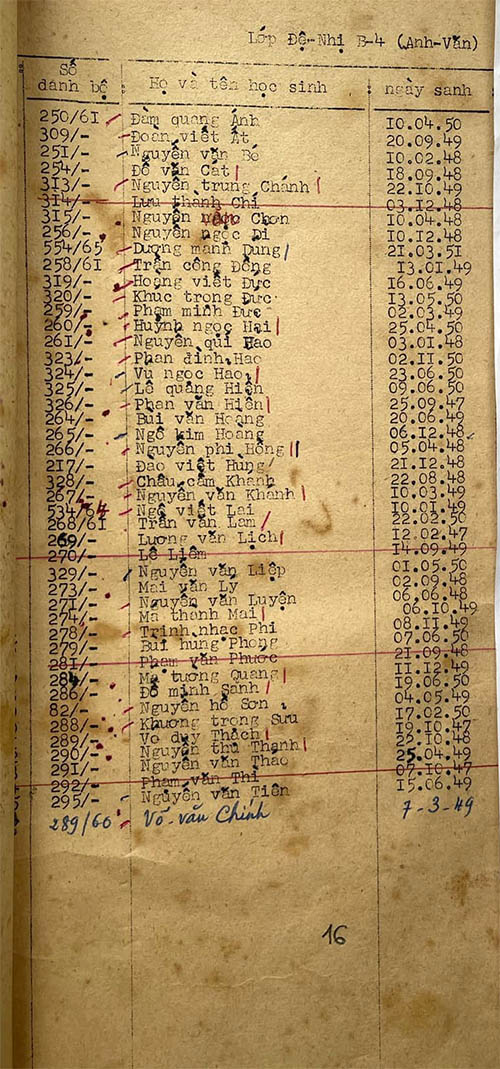 Lớp Đệ-Nhị B-4 (Anh-Văn)
Số danh bộ Họ và tên học sinh ngày sanh
250/61 Đàm quang Ánh 10.04.50
309/- Đoàn viết Ất 20.09.49
251/- Nguyễn văn Bé 10.02.48
254/- Đỗ văn Cát 18.09.48
313/- Nguyễn trung Chánh 22.10.49
314/- Lưu thanh Chí 03.12.48
315/- Nguyễn Chơn 10.04.48
256/- Nguyễn ngọc Di 10.12.48
554/65 Dương mạnh Dũng 21.03.51
258/61 Trần công Đồng 13.01.49
319/- Hoàng viết Đực 16.06.49
320/- Khúc trọng Đức 13.05.50
259/- Phạm minh Đức 02.03.49
260/- Huỳnh ngọc Hai 25.04.50
261/- Nguyễn qui Hao 03.01.48
323/- Phan đình Hao 02.11.50
324/- Vu ngọc Hao 23.06.50
325/- Lê quang Hiện 09.06.50
326/- Phan văn Hiền 25.09.47
264/- Bùi văn Hoàng 20.06.49
265/- Ngô kim Hoàng 06.12.48
266/- Nguyễn phi Hồng 05.04.48
217/- Đào việt Hùng 21.12.48
328/- Châu cẩm Khanh 22.08.48
267/- Nguyễn văn Khánh 10.03.49
534/64 Ngô viết Lai 10.01.49
268/61 Trần văn Lam 22.02.50
269/- Lương văn Lịch 12.02.47
270/- Lê Liêm 14.09.49
329/- Nguyễn văn Liệp 01.05.50
273/- Mai văn Lý 02.09.48
271/- Nguyễn văn Luyện 06.06.48
274/- Mã thành Mai 06.10.49
278/- Trịnh nhạc Phi 08.11.49
279/- Bùi hùng Phong 07.06.50
281/- Phạm văn Phước 21.09.48
284/- Mã tường Quang 11.12.49
286/- Đỗ minh Sanh 19.06.50
82/- Nguyễn hồ Sơn 04.05.49
288/- Khương trọng Sửu 17.02.50
289/- Vo duy Thạch 19.10.47
290/- Nguyễn thu Thanh 22.10.48
291/- Nguyễn văn Thao 25.04.49
292/- Phạm văn Thi 07.10.47
295/- Nguyễn văn Tiên 15.06.49
289/60 Võ-văn Chính 7-3-49
16